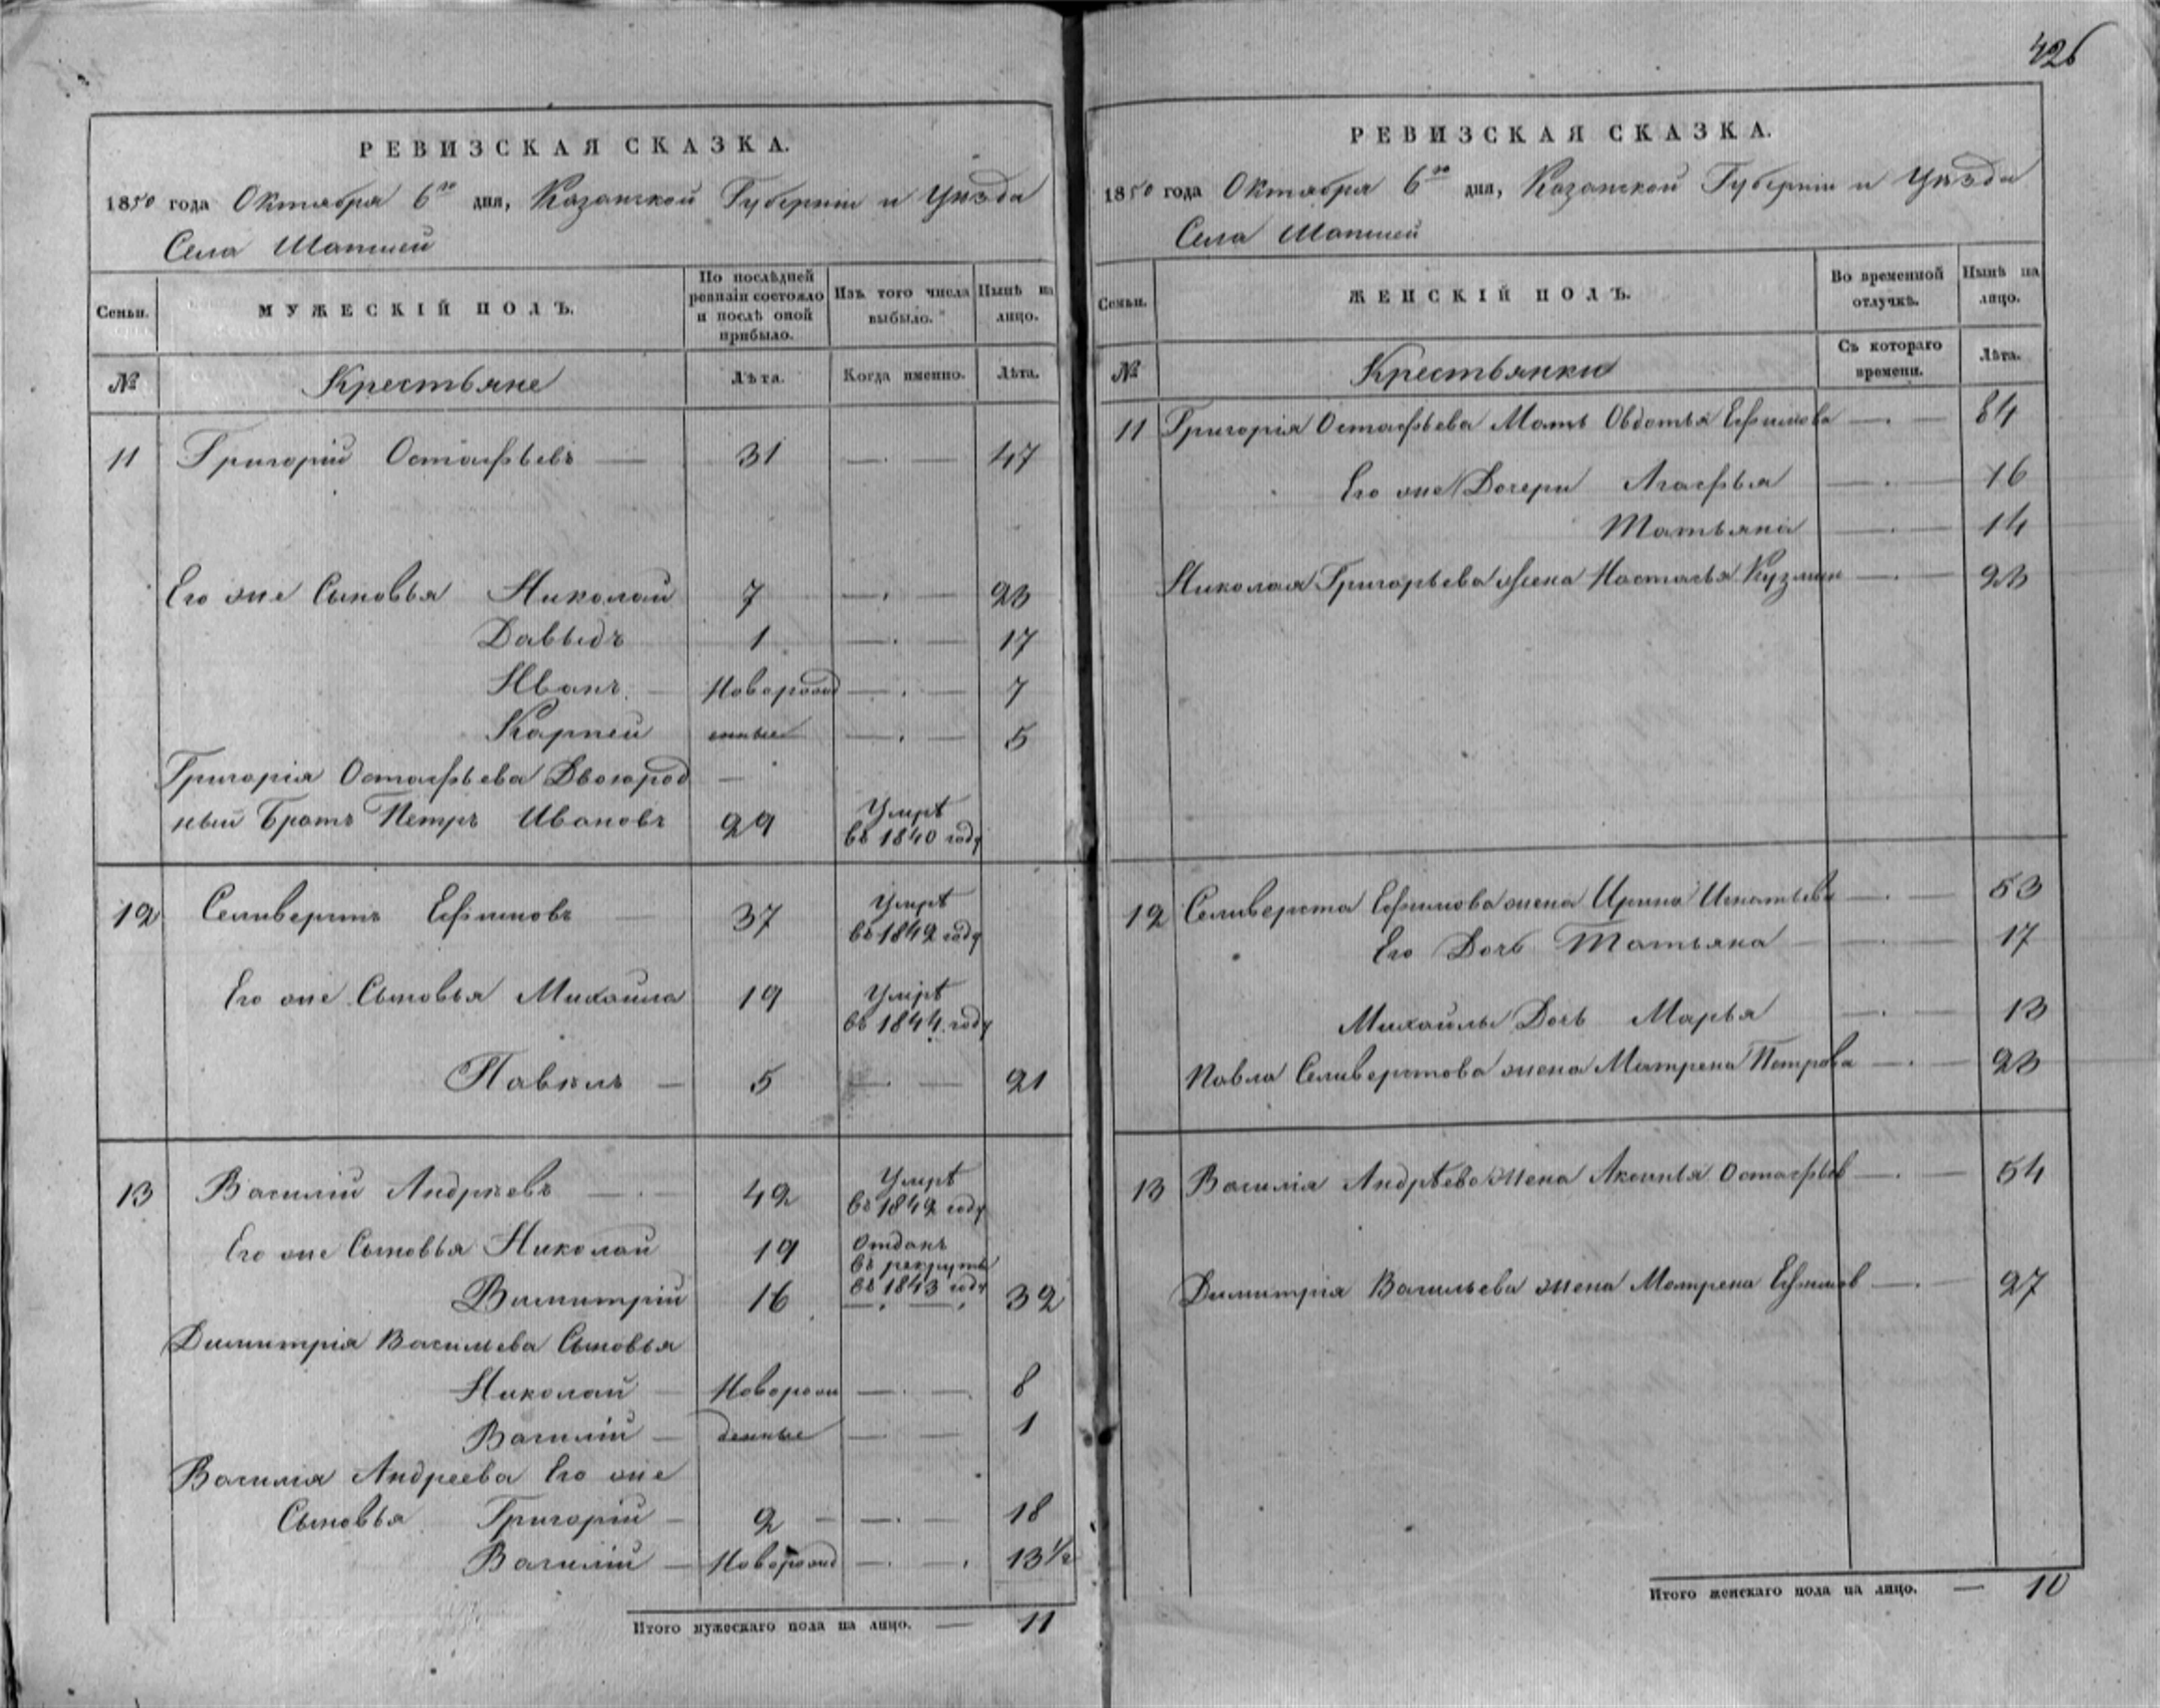 426
РЕВИЗСКАЯ СКАЗКА.
1850 года Октября 6го дня, Казанской Губерніи и Уѣзда
Села Шапшей
Семьи. МУЖЕСКІЙ ПОЛЪ. По послѣдней ревизіи состояло и послѣ оной прибыло. Изъ того числа выбыло. Нынѣ на лицо.
№ Крестьяне Лѣта. Когда именно. Лѣта.
11 Григорій Остафьевъ — 31 — . — 47
Его же Сыновья Николай 7 — . — 23
Давыдъ 1 — . — 17
Иванъ — Новорожд — . — 7
Карпей енные — . — 5
Григорія Остафьева Двоюрод —
ный Братъ Петръ Ивановъ 29 Умрѣ въ 1840 году
12 Селиверстъ Ефимовъ — 37 Умрѣ въ 1842 году
Его же Сыновья Михайла 19 Умрѣ въ 1844 году
Павелъ — 5 — . — 21
13 Василій Андреевъ — . — 42 Умрѣ въ 1842 году
Его же Сыновья Николай 19 Отданъ въ рекруты въ 1843 году
Димитрій 16 — . — . 32
Димитрія Васильева Сыновья
Николай — Новорож — . — 8
Василій — денные — — 1
Василія Андреева Его же
Сыновья Григорій — 2 — — . — 18
Василій — Новорожд — . — . 13 1/2
Итого мужескаго пола на лицо. — 11
РЕВИЗСКАЯ СКАЗКА.
1850 года Октября 6го дня, Казанской Губерніи и Уѣзда
Села Шапшей
Семьи. ЖЕНСКІЙ ПОЛЪ. Во временной отлучкѣ. Нынѣ на лицо.
№ Крестьянки Съ котораго времени. Лѣта.
11 Григорія Остафьева Мать Овдотья Ефимова — . — 84
Его же Дочери Агафья — . — 16
Татьяна — . — 14
Николая Григорьева жена Настасья Кузмин — . — 23
12 Селиверста Ефимова жена Ирина Игнатьева — . — 53
Его Дочь Татьяна — . — 17
Михайлы Дочь Марья — . — 13
Павла Селиверстова жена Матрена Петрова — . — 23
13 Василія Андрѣева жена Аксинья Остафьев — . — 54
Димитрія Васильева жена Матрена Ефимов — . — 27
Итого женскаго пола на лицо. — 10